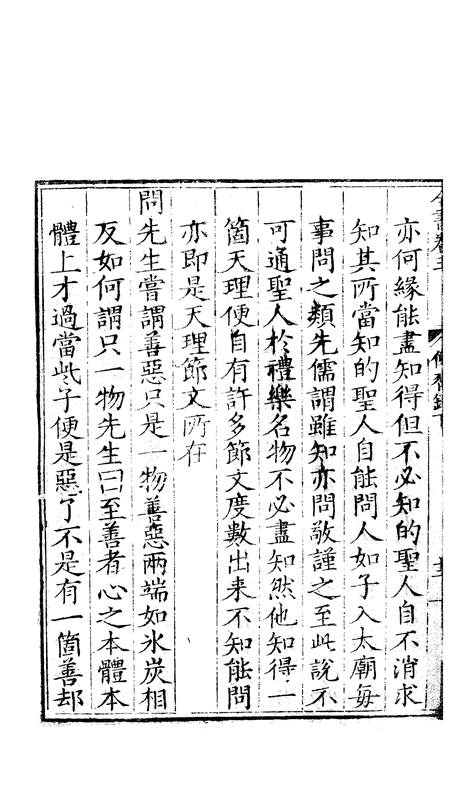 亦何緣能盡知得但不必知的聖人自不消求
知其所當知的聖人自能問人如子入太廟每
事問之類先儒謂雖知亦問敬謹之至此說不
可通聖人於禮樂名物不必盡知然他知得一
箇天理便自有許多節文度數出来不知能問
亦即是天理節文所在
問先生嘗謂善惡只是一物善惡兩端如氷炭相
反如何謂只一物先生曰至善者心之本體本
體上才過當些子便是惡了不是有一箇善却